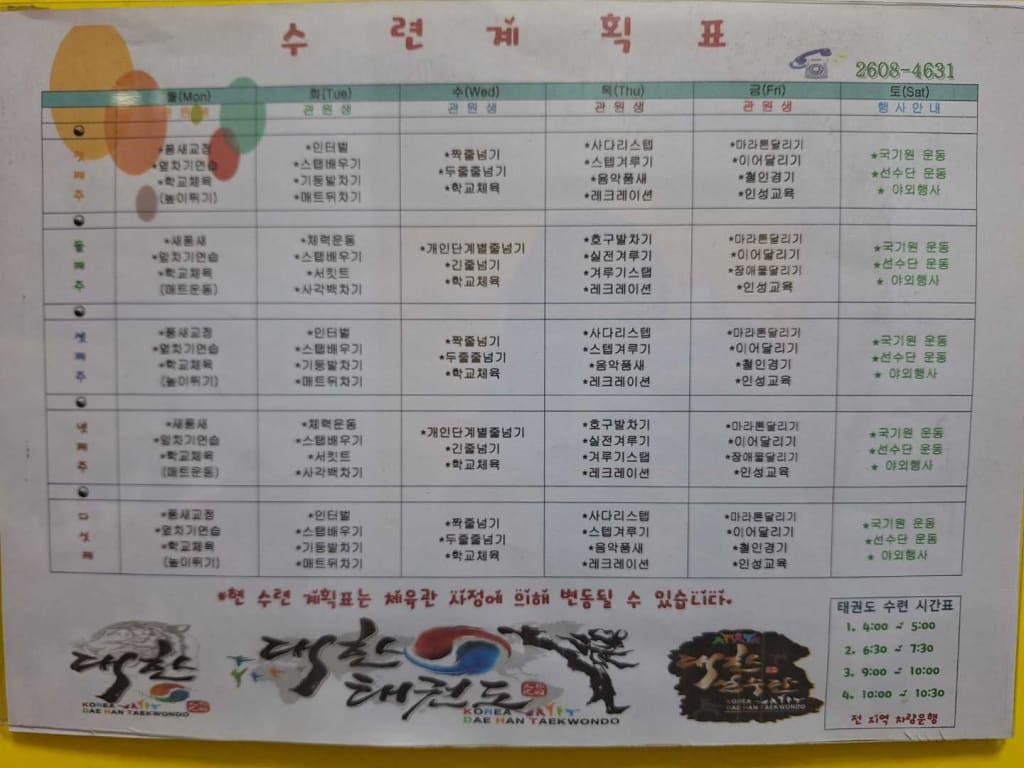 수 련 계 획 표
2608-4631
월(Mon) 화(Tue) 수(Wed) 목(Thu) 금(Fri) 토(Sat)
관 원 생 관 원 생 관 원 생 관 원 생 관 원 생 행 사 안 내
첫째주
*품새교정 *인터벌 *짝줄넘기 *사다리스텝 *마라톤달리기 *국기원 운동
*옆차기연습 *스탭배우기 *두줄줄넘기 *스텝겨루기 *이어달리기 *선수단 운동
*학교체육 *기둥발차기 *학교체육 *음악품새 *철인경기 * 야외행사
(높이뛰기) *매트뒤차기 *레크레이션 *인성교육
둘째주
*새품새 *체력운동 *개인단계별줄넘기 *호구발차기 *마라톤달리기 *국기원 운동
*옆차기연습 *스탭배우기 *긴줄넘기 *실전겨루기 *이어달리기 *선수단 운동
*학교체육 *서킷트 *학교체육 *겨루기스탭 *장애물달리기 * 야외행사
(매트운동) *사각백차기 *레크레이션 *인성교육
셋째주
*품새교정 *인터벌 *짝줄넘기 *사다리스텝 *마라톤달리기 *국기원 운동
*옆차기연습 *스탭배우기 *두줄줄넘기 *스텝겨루기 *이어달리기 *선수단 운동
*학교체육 *기둥발차기 *학교체육 *음악품새 *철인경기 * 야외행사
(높이뛰기) *매트뒤차기 *레크레이션 *인성교육
넷째주
*새품새 *체력운동 *개인단계별줄넘기 *호구발차기 *마라톤달리기 *국기원 운동
*옆차기연습 *스탭배우기 *긴줄넘기 *실전겨루기 *이어달리기 *선수단 운동
*학교체육 *서킷트 *학교체육 *겨루기스탭 *장애물달리기 * 야외행사
(매트운동) *사각백차기 *레크레이션 *인성교육
다섯째
*품새교정 *인터벌 *짝줄넘기 *사다리스텝 *마라톤달리기 *국기원 운동
*옆차기연습 *스탭배우기 *두줄줄넘기 *스텝겨루기 *이어달리기 *선수단 운동
*학교체육 *기둥발차기 *학교체육 *음악품새 *철인경기 * 야외행사
(높이뛰기) *매트뒤차기 *레크레이션 *인성교육
*현 수련 계획표는 체육관 사정에 의해 변동될 수 있습니다.
태권도 수련 시간표
1. 4:00 ~ 5:00
2. 6:30 ~ 7:30
3. 9:00 ~ 10:00
4. 10:00 ~ 10:30
전 지역 차량운행
대한
KOREA
DAE HAN TAEKWONDO
대한
태권도
KOREA
DAE HAN TAEKWONDO
대한
선수단
KOREA
DAE HAN TAEKWONDO